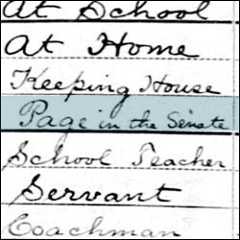 At School
At Home
Keeping House
Page in the Senate
School Teacher
Servant
Coachman